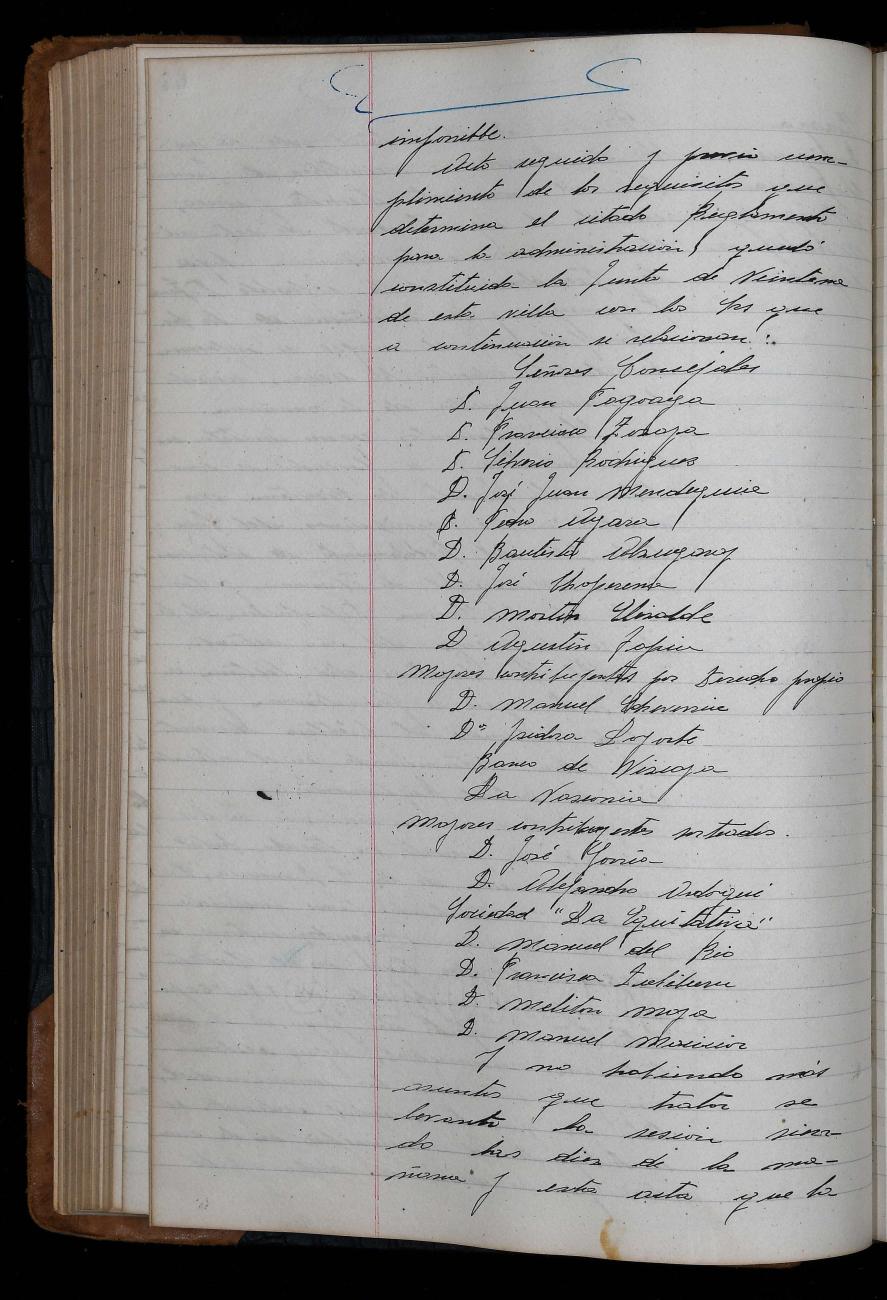 imponible.
Acto seguido y previo cum-
plimiento de los requisitos que
determina el citado Reglamento
para la administración, quedó
constituida la Junta de Veintena
de esta villa con los Srs que
a continuación se relacionan:.
Señores Consejales
D. Juan Tagoaga
D. Francisco Zozaya
D. Silverio Rodriguez
D. José Juan Mendeguia
D. Pedro
D. Bautista
D. José Choperena
D. Martin Elizalde
D Agustin Tapia
Mayores contribuyentes por Derecho propio
D. Manuel Echeverria
Dª Isidra
Banco de Vizcaya
La Vasconia
Mayores contribuyentes sorteados.
D. José Goñia
D. Alejandro
Sociedad "La Equitativa"
D. Manuel del Rio
D. Francisco
D. Meliton Maya
D. Manuel
Y no habiendo más
asuntos que tratar se
levanto la sesión sien-
do las diez de la ma-
ñana y esta acta que la